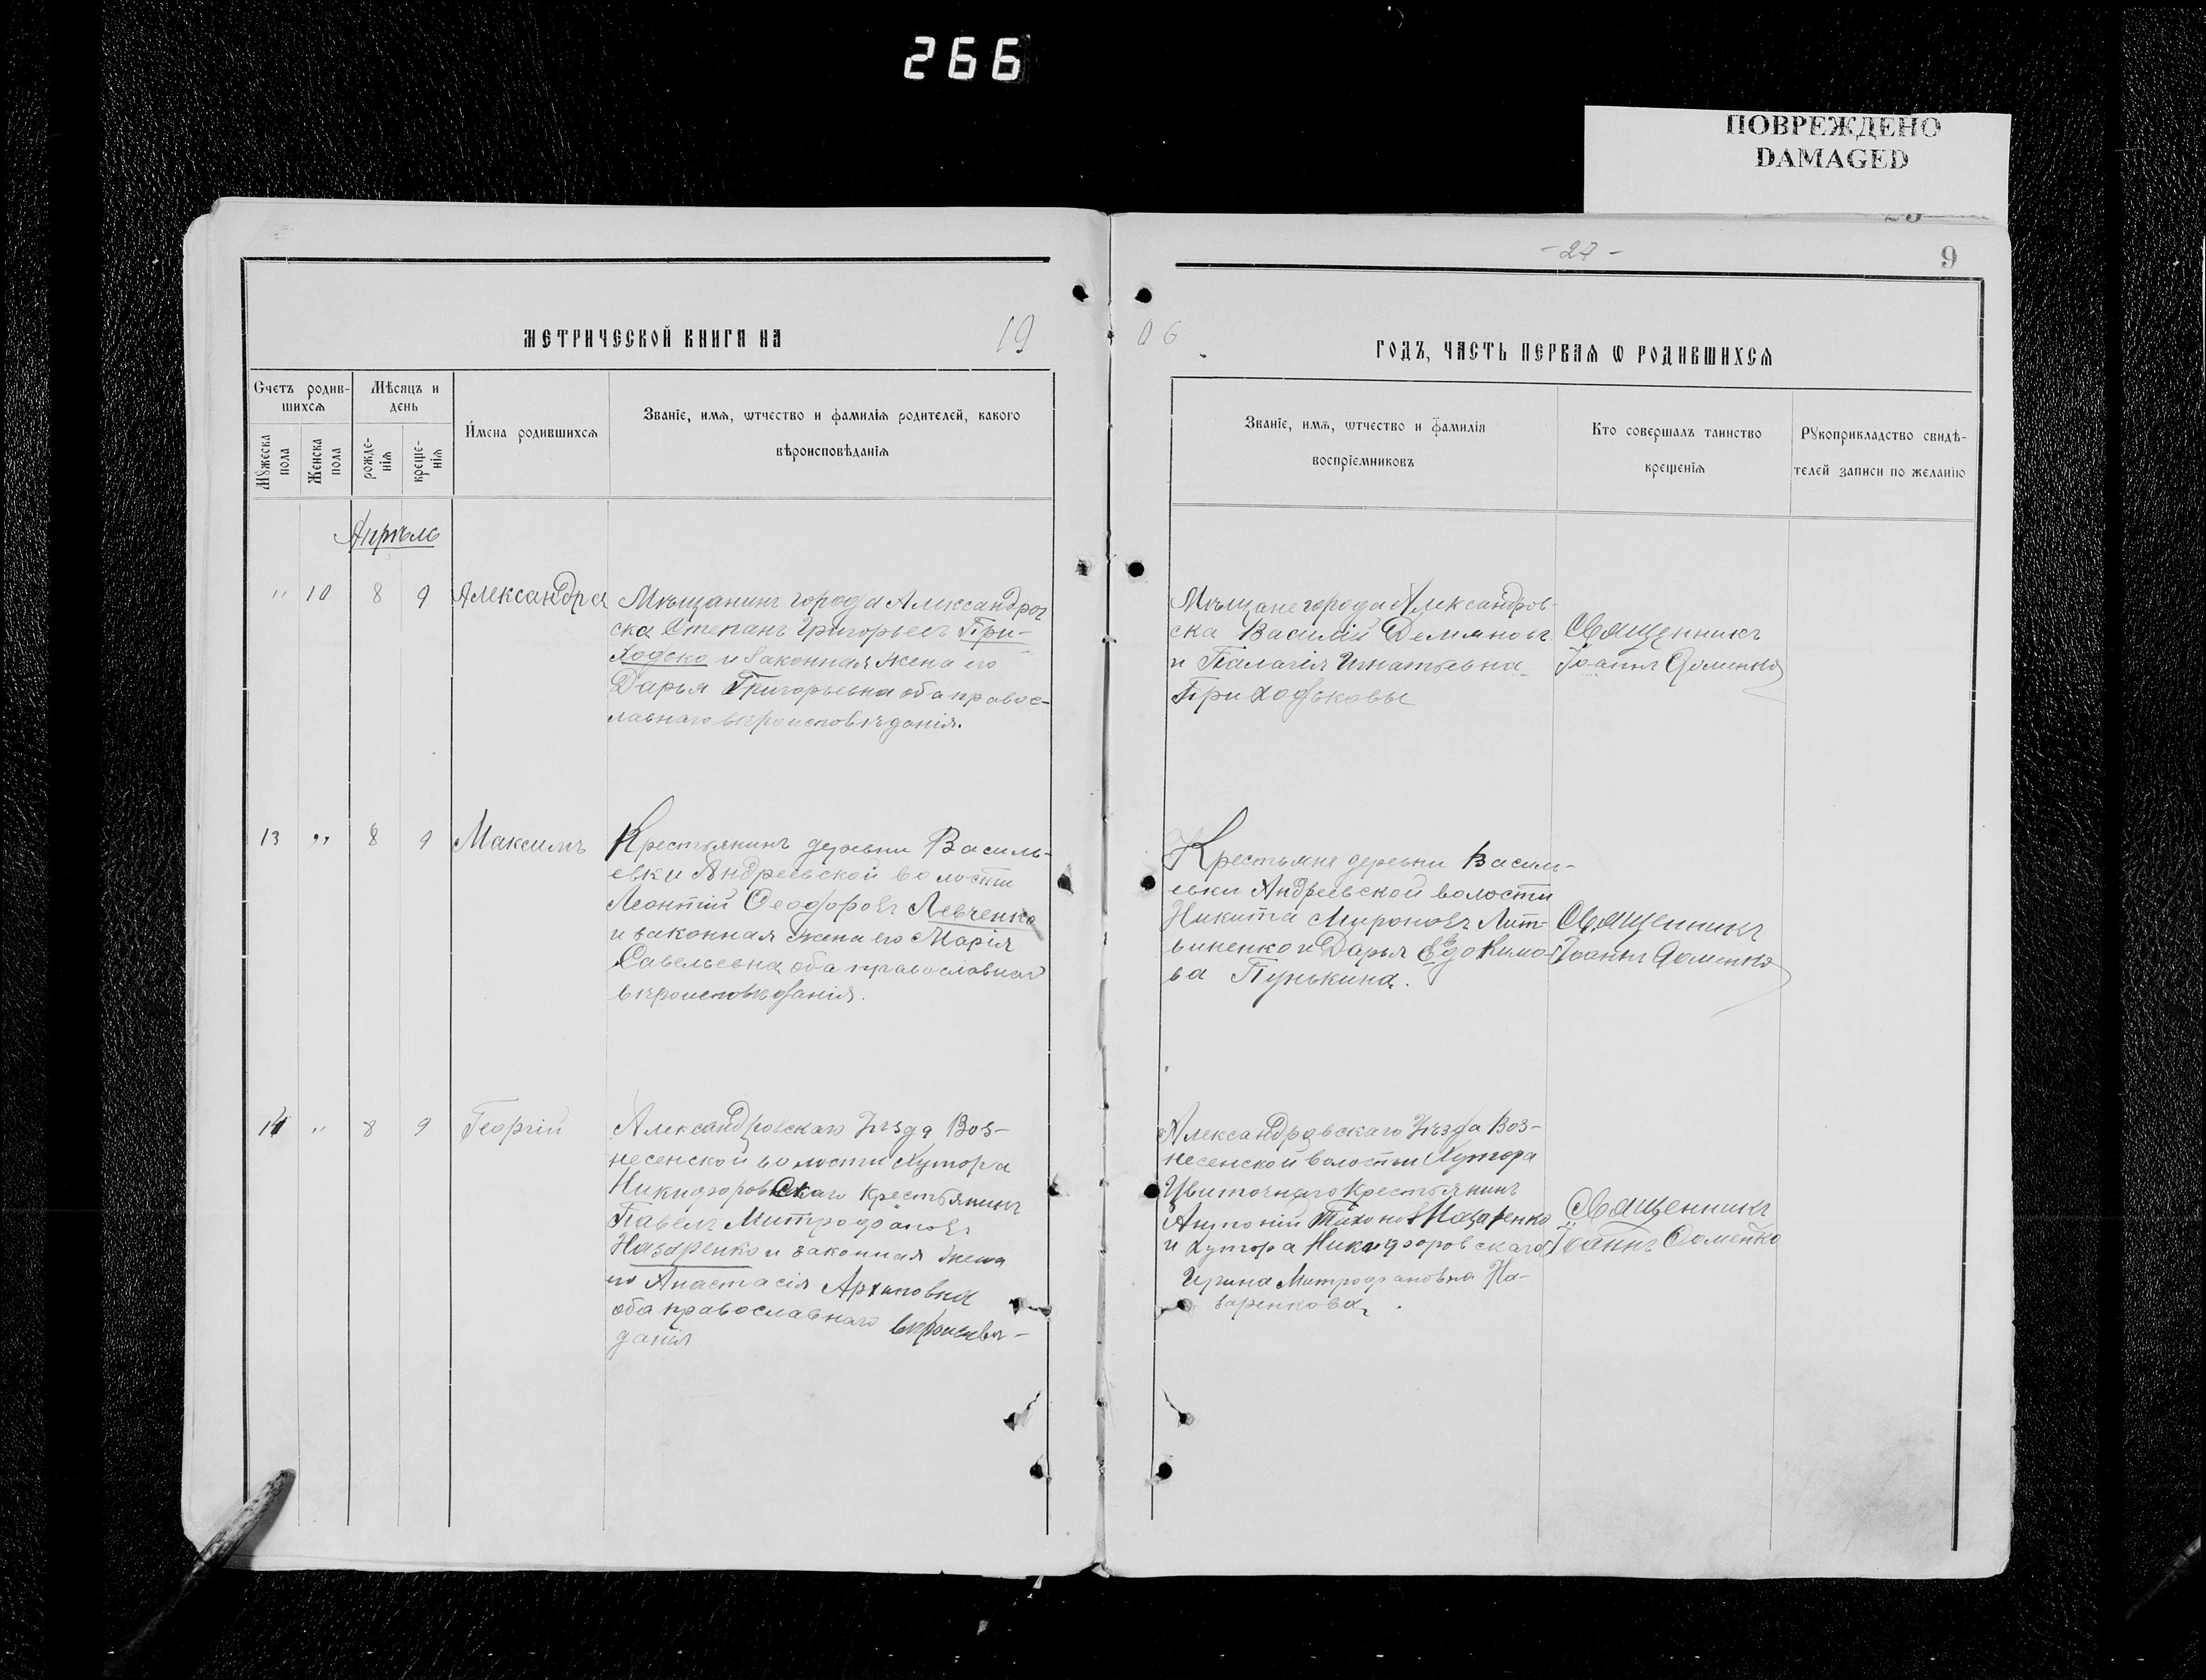 266
ПОВРЕЖДЕНО
DAMAGED
- 27 -
9
МЕТРИЧЕСКОЙ КНИГИ НА 19
06 ГОДЪ, ЧАСТЬ ПЕРВАЯ Ѡ РОДИВШИХСЯ
Счетъ родив-
шихсѧ
Мѣсяцъ и
день
Мꙋжеска
пола
Женска
пола
рожде-
нїѧ
креще-
нїѧ
Имена родившихсѧ
Званїе, имѧ, ѡтчество и фамилїѧ родителей, какого
вѣроисповѣданїѧ
Званїе, имѧ, ѡтчество и фамилїя
воспрїемниковъ
Кто совершалъ таинство
крещенїѧ
Рꙋкоприкладство свидѣ-
телей записи по желанїю
Апрѣль
" 10 8 9 Александра
Мѣщанинъ города Александров
ска Степанъ Григорьевъ При-
ходько и законная жена его
Дарья Григорьевна оба правос-
лавнаго вѣроисповѣданія.
Мѣщане города Александров-
ска Василій Демяновъ
и Палагія Игнатьевна
Приходьковы
Священникъ
Іоаннъ Доменко
13 " 8 9 Максимъ
Крестьянинъ деревни Василь-
евки Андреевской волости
Леонтій Ѳеодоровъ Левченко
и законная жена его Марія
Савельевна оба православнаго
вѣроисповѣданія.
Крестьяне деревни Василь-
евки Андреевской волости
Никита Мироновъ Лит-
виненко и Дарья Евдокимо-
ва Пунькина.
Священникъ
Іоаннъ Доменко
14 " 8 9 Георгій
Александровскаго Уѣзда Воз-
несенской волости Хутора
Никифоровскаго крестьянинъ
Павелъ Митрофановъ
Назаренко и законная жена
его Анастасія Архиповна
оба православнаго вѣроисповѣ-
данія
Александровскаго Уѣзда Воз-
несенской волости Хутора
Цвиточнаго крестьянинъ
Антоній Тихоновъ Назаренко
и Хутора Никифоровскаго
Ирина Митрофановна На-
заренкова.
Священникъ
Іоаннъ Доменко